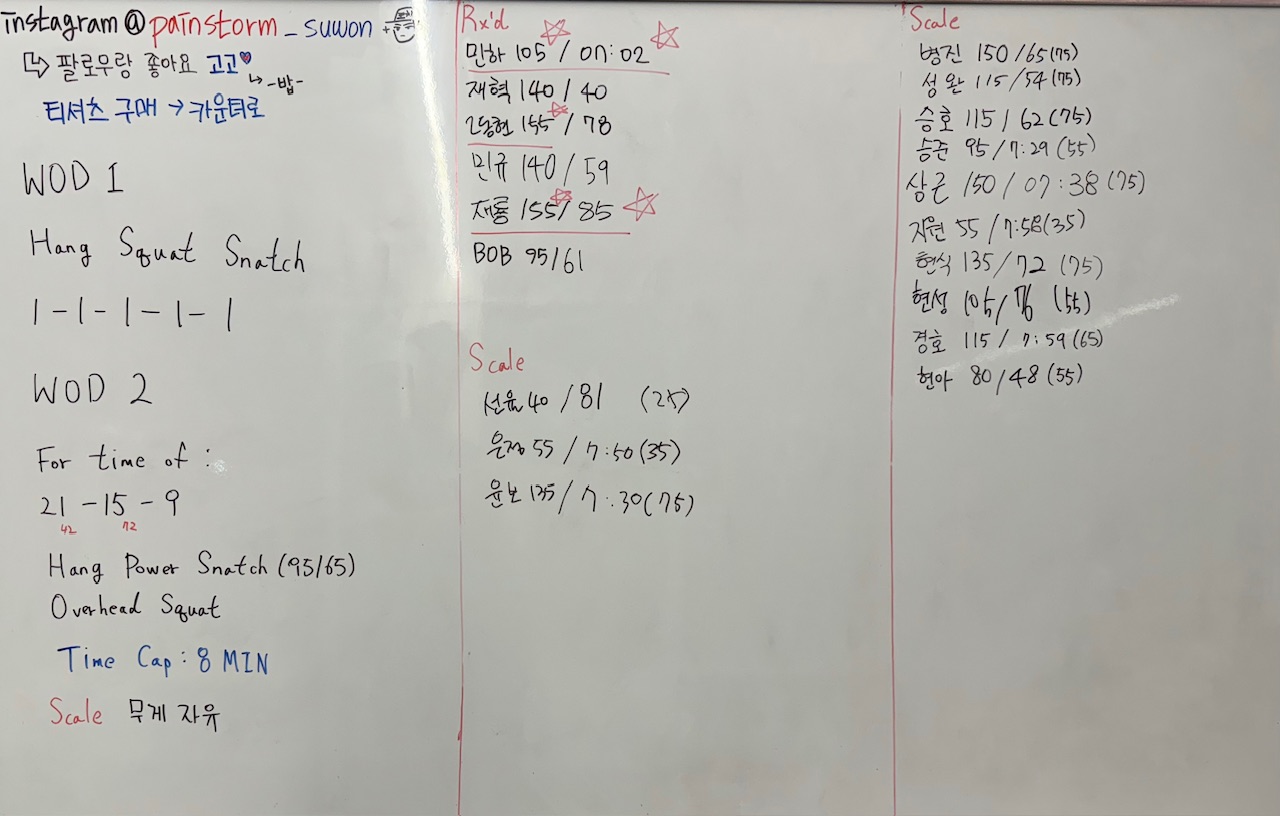 instagram@painstorm_suwon
팔로우랑 좋아요 고고
-밥-
티셔츠 구매 → 카운터로
WOD 1
Hang Squat Snatch
1-1-1-1-1
WOD 2
For time of :
21-15-9
42 72
Hang Power Snatch (95/65)
Overhead Squat
Time Cap : 8 MIN
Scale 무게 자유
Rx'd
민하 105 / 07:02
재혁 140 / 40
155 / 78
민규 140 / 59
재룡 155 / 85
BOB 95/61
Scale
선율 40 / 81 (25)
은정 55 / 7:50 (35)
윤보 135 / 7:30 (75)
Scale
병진 150 /65(75)
성완 115/54(75)
승호 115 / 62 (75)
승준 95 / 7:29 (55)
상근 150 / 07:38 (75)
지원 55 / 7:58(35)
현식 135 / 72 (75)
현성 105/ 76 (55)
경호 115 / 7:59 (65)
현아 80/48 (55)